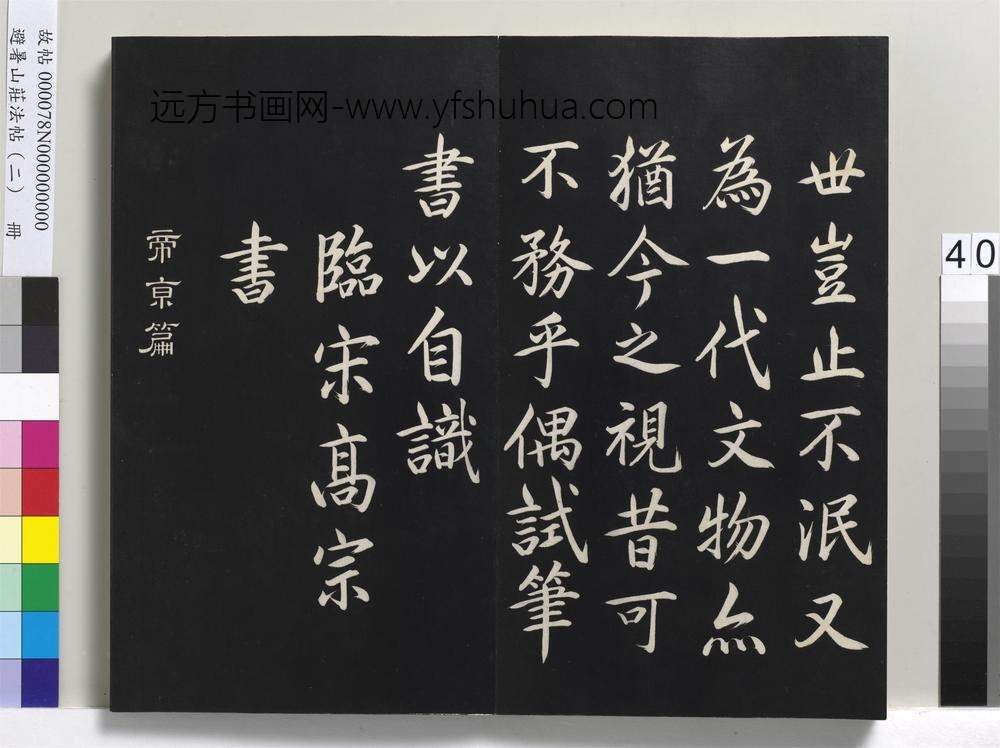 世豈止不泯又
為一代文物亦
猶今之視昔可
不務乎偶試筆
書以自識
臨宋高宗
書
帝京篇
远方书画网-www.yfshuhua.com
故帖 000078N000000000
避暑山莊法帖（二） 冊
40